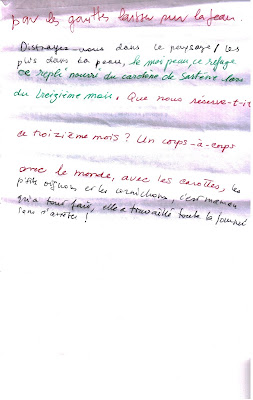 par les gouttes laisser sur la peau.
Distrayez-vous dans le paysage / les
plis dans la peau, le moi peau, ce refuge
ce repli nourri du carotène de Sartène lors
du treizième mois. Que nous réserve-t-i
ce troizième mois ? Un corps-à-corps
avec le monde, avec les carottes, les
p'tits oignons et les cornichons, c'est maman
qu'a tout fait, elle a travaillé toute la journée
sans s'arrêter !